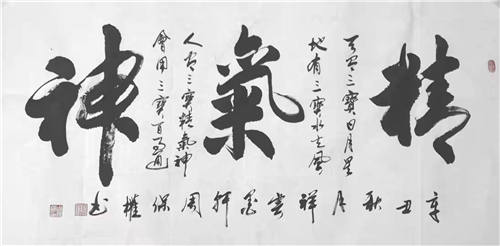 精
天有三寶日月星
地有三寶水火風
氣
人有三寶精氣神
會用三寶百事通
神
辛丑秋月祥雲軒周保權书